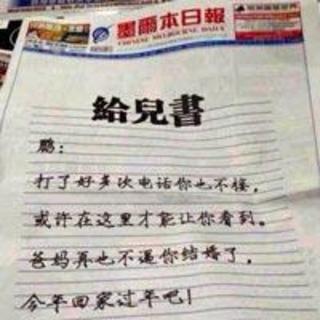 墨爾本日報
CHINESE MELBOURNE DAILY
給兒書
鹏：
打了好多次电话你也不接，
或许在这里才能让你看到。
爸妈再也不逼你结婚了，
今年回家过年吧！